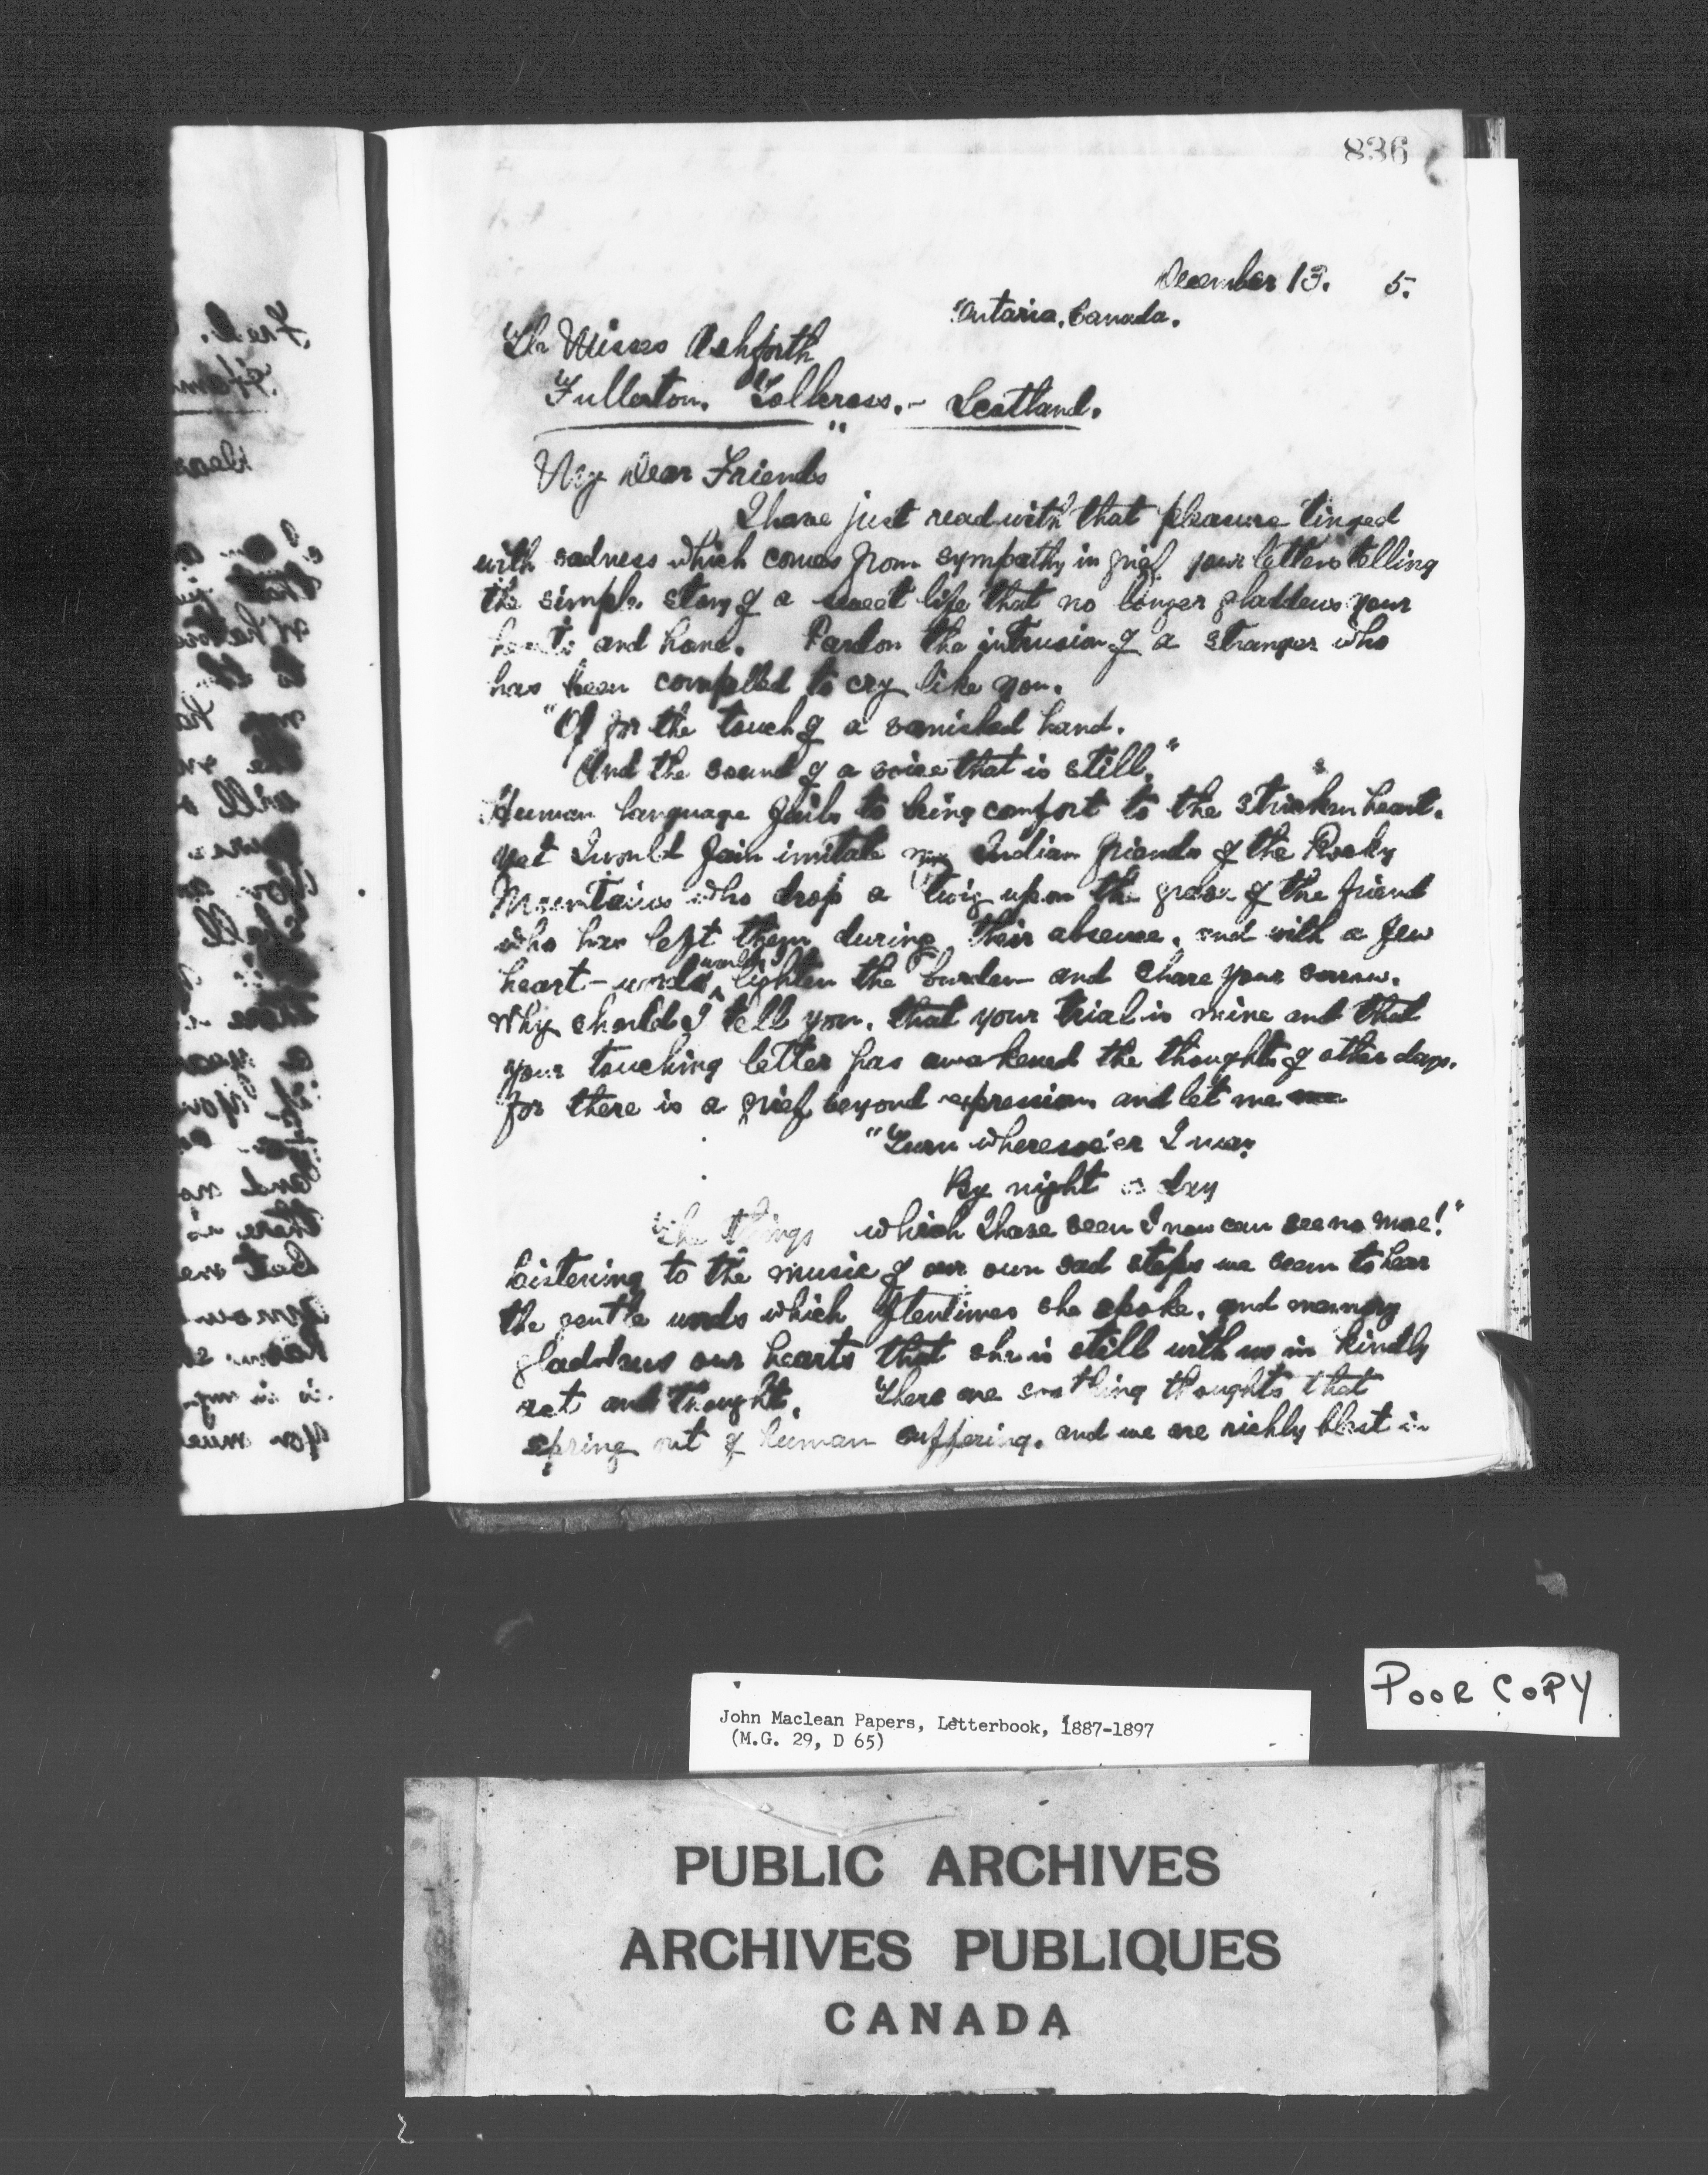 836
December 13. 5.
Ontario, Canada.
The Misses Ashforth
Fullerton. Tollcross. - Scotland.
My Dear Friends
I have just read with that pleasure tinged
with sadness which comes from sympathy in grief your letters telling
the simple story of a sweet life that no longer gladdens your
hearts and home. Pardon the intrusion of a stranger who
has been compelled to cry like you.
"O for the touch of a vanished hand.
And the sound of a voice that is still."
Human language fails to bring comfort to the stricken heart.
yet I would fain imitate my Indian friends of the Rocky
Mountains who drop a twig upon the grave of the friend
who has left them during their absence, and with a few
heart-words would lighten the burden and share your sorrow.
Why should I tell you, that your trial is mine and that
your touching letter has awakened the thoughts of other days.
for there is a grief beyond expression and let me
"Turn wheresoe'er I may
By night or day
The things which I have seen I now can see no more!"
Listening to the music of our own sad steps we seem to hear
the gentle words which oftentimes she spoke, and memory
gladdens our hearts that she is still with us in kindly
act and thought. There are soothing thoughts that
spring out of human suffering, and we are richly blest in
POOR COPY
John Maclean Papers, Letterbook, 1887-1897
(M.G. 29, D 65)
PUBLIC ARCHIVES
ARCHIVES PUBLIQUES
CANADA